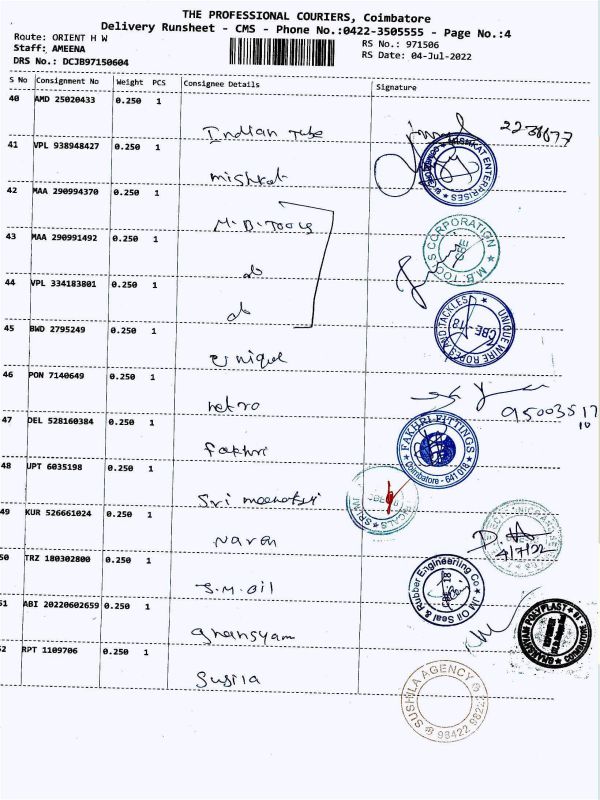 THE PROFESSIONAL COURIERS, Coimbatore
Delivery Runsheet - CMS - Phone No.:0422-3505555 - Page No.:4
Route: ORIENT H W
RS No.: 971506
Staff: AMEENA
RS Date: 04-Jul-2022
DRS No.: DCJB97150604
S No Consignment No Weight PCS Consignee Details Signature
40 AMD 25020433 0.250 1
Indian Tube
41 VPL 938948427 0.250 1
MISHKAT ENTERPRISES
mishkat
42 MAA 290994370 0.250 1
M.B.Tools
M.B.TOOLS CORPORATION
CBE
43 MAA 290991492 0.250 1
do
44 VPL 334183801 0.250 1
do
UNIQUE WIRE ROPES AND TACKLES
CBE-18
45 BWD 2795249 0.250 1
Unique
46 PON 7140649 0.250 1
retro
47 DEL 528160384 0.250 1
FAKHRI FITTINGS
Coimbatore - 641 018
fakhri
48 UPT 6035198 0.250 1
Sri meenatsi
49 KUR 526661024 0.250 1
Naren
4/7/22
50 TRZ 180302800 0.250 1
S.M.Oil
Oil Seal & Rubber Engineering Co
51 ABI 20220602659 0.250 1
ghansyam
GHANSHYAM POLYPLAST
52 RPT 1109706 0.250 1
Susila
SUSHILA AGENCY
98422